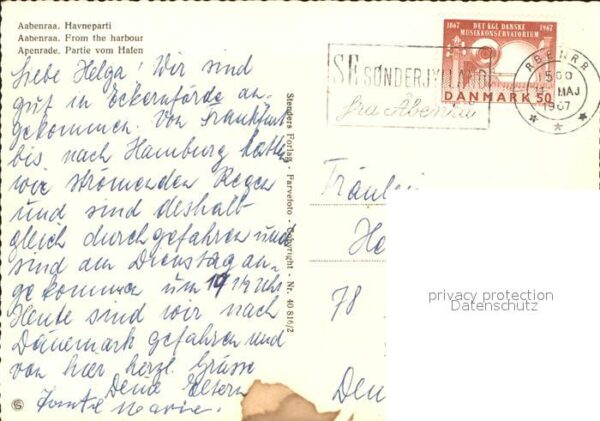 Aabenraa. Havneparti
Aabenraa. From the harbour
Apenrade. Partie vom Hafen
Liebe Helga! Wir sind
gut in Eckernförde an-
gekommen. Von Frankfurt
bis nach Hamburg hatten
wir strömenden Regen
und sind deshalb
gleich durchgefahren und
sind am Dienstag an-
gekommen um Uhr
Heute sind wir nach
Dänemark gefahren und
von hier herzl. Grüsse
Deine Eltern
Tante Marie.
Stenders Forlag - Farvefoto - Copyright - Nr. 40 816/2
1867 DET KGL. DANSKE 1967
MUSIKKONSERVATORIUM
DANMARK 50
SE SØNDERJYLLAND
fra Åbenrå
ÅBENRÅ
1500
MAJ
1967
Fräulein
He
78
Den
privacy protection
Datenschutz